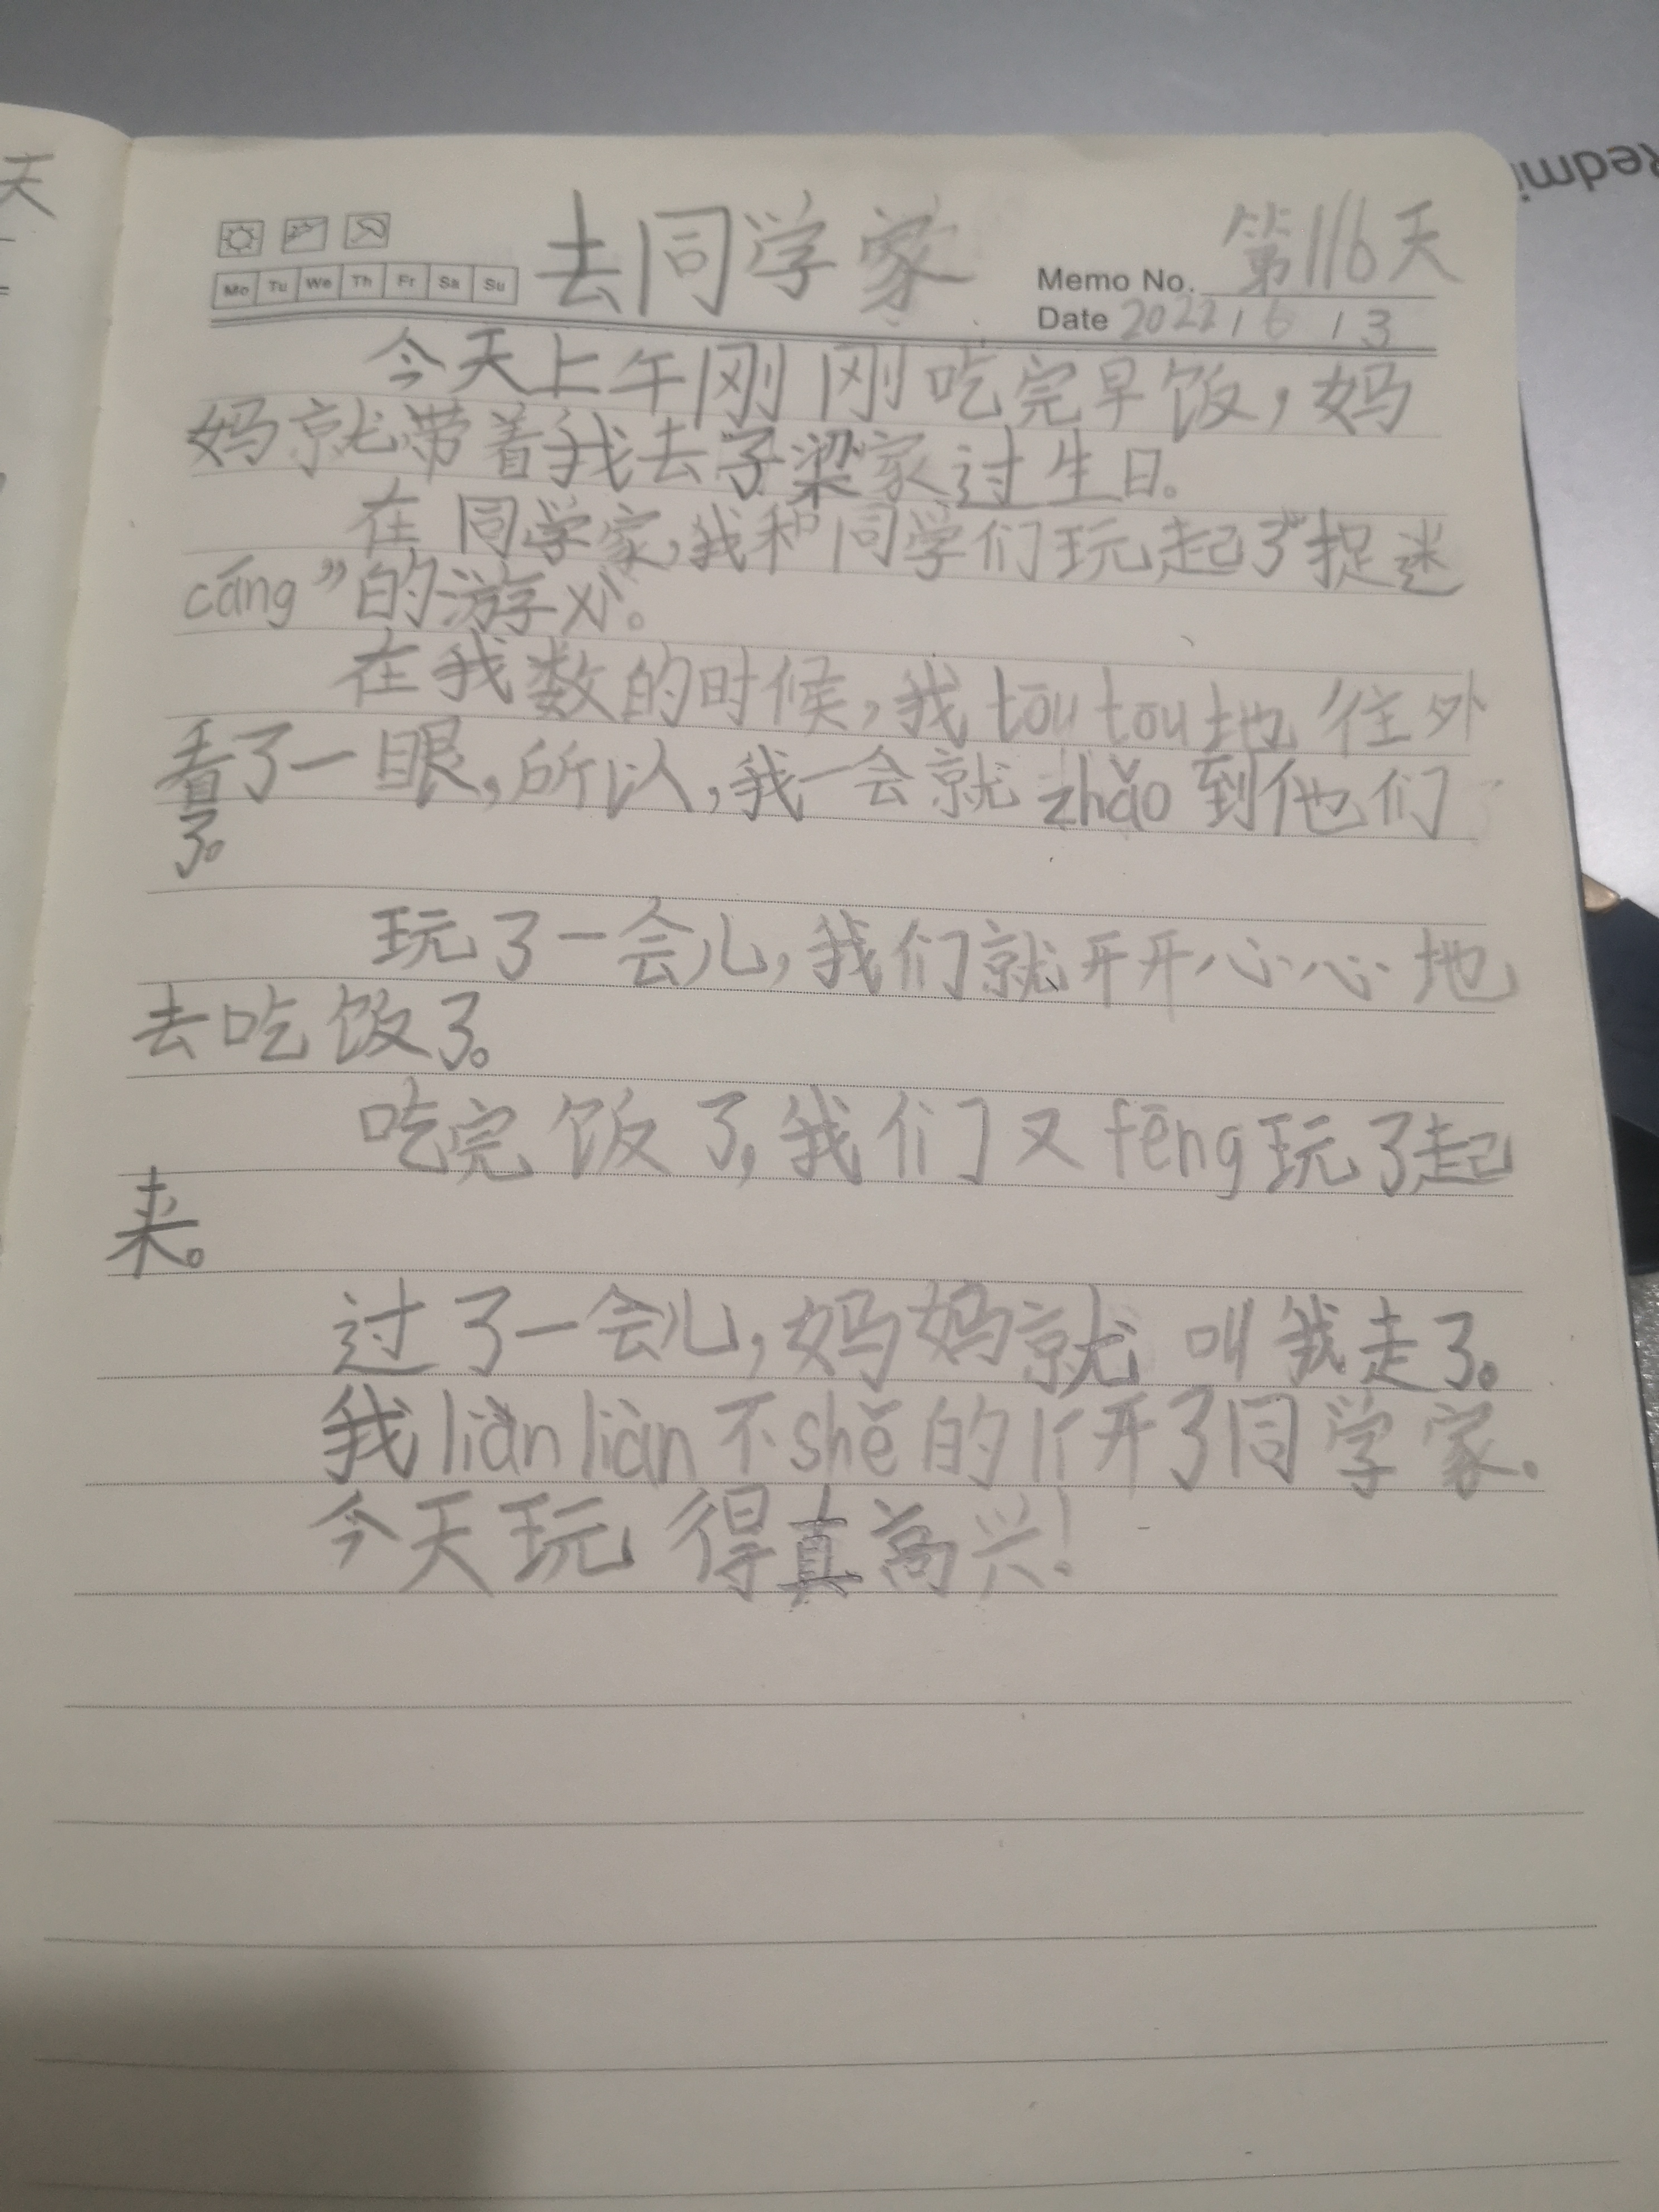 天
Redmi
去同学家
第116天
Mo Tu We Th Fr Sa Su
Memo No.
Date 2022 / 6 / 3
今天上午刚刚吃完早饭，妈
妈就带着我去子梁家过生日。
在同学家，我和同学们玩起了“捉迷
cāng”的游戏。
在我数的时候，我tōu tōu地往外
看了一眼，所以，我一会就zhǎo到他们
了。
玩了一会儿，我们就开开心心地
去吃饭了。
吃完饭了，我们又fēng玩了起
来。
过了一会儿，妈妈就叫我走了。
我liàn liàn不shě的lí开了同学家。
今天玩得真高兴！